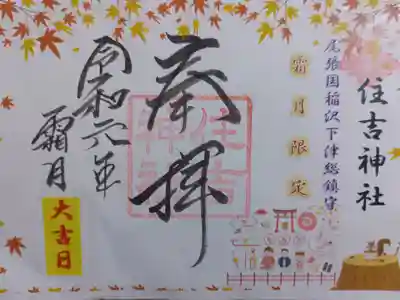 住吉神社
尾張国稲沢下津総鎮守
霜月限定
奉拝
住吉神社
令和元年
霜月
大吉日